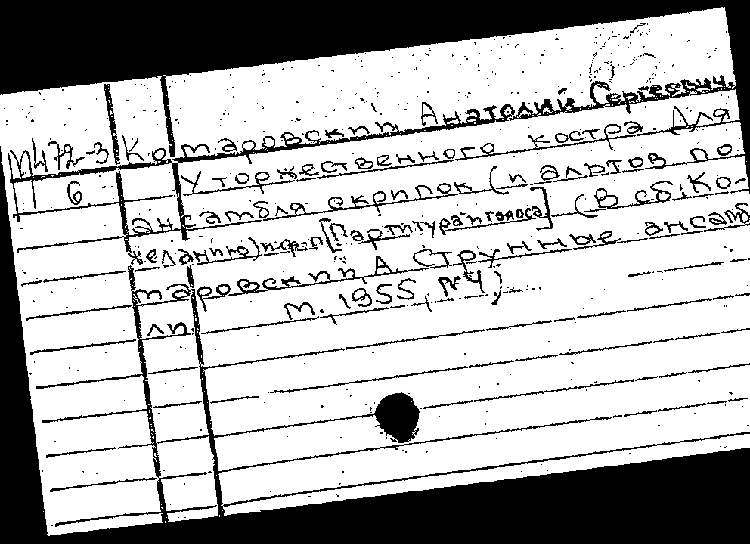 М472-3 Комаровский Анатолий Сергеевич.
6 У торжественного костра. Для
ансамбля скрипок (и альтов по
желанию) и ф.-п. [Партитура и голоса] (В сб.: Ко-
маровский, А. Струнные ансамб
ли. М., 1955, №4)